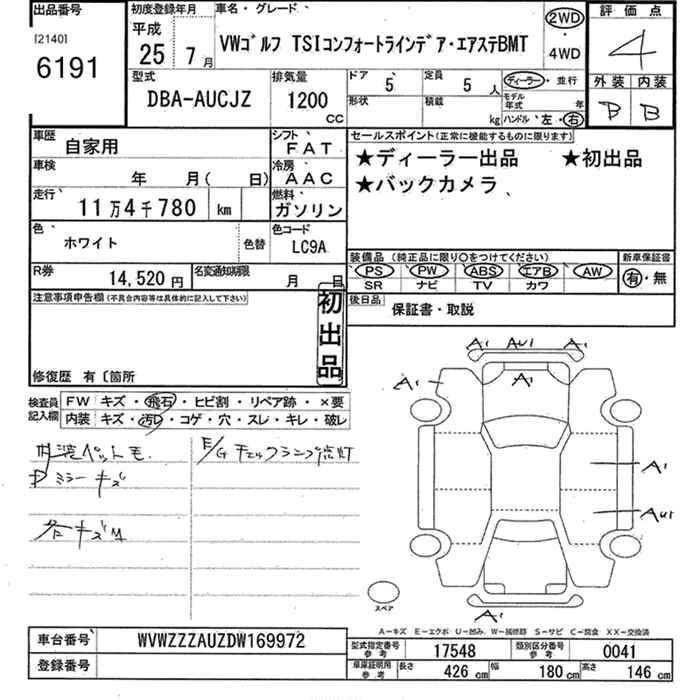 出品番号 初度登録年月 車名・グレード 評価点
[2140]
6191
平成 25年 7月
VWゴルフ TSIコンフォートラインデア・エアステBMT
2WD・4WD
4
型式 排気量 ドア 定員 外装 内装
DBA-AUCJZ 1200 CC 5 5人 ディーラー・並行
形状 積載 kg モデル年式 年 B B
ハンドル 左・右
車歴 自家用 シフト FAT セールスポイント(正常に機能するものに限ります)
車検 年 月( 日) 冷房 AAC ★ディーラー出品 ★初出品
走行 11万4千780 km 燃料 ガソリン ★バックカメラ
色 ホワイト 色替 色コード LC9A
装備品(純正品に限り○をつけてください) 新車保証書
R券 14,520円 名変通知期限 月 日
PS PW ABS エアB AW 有・無
SR ナビ TV カワ
注意事項申告欄(不具合内容等は具体的に記入して下さい) 初出品 後日品 保証書・取説
修復歴 有〔箇所
検査員記入欄
FW キズ・飛石・ヒビ割・リペア跡・×要
内装 キズ・汚レ・コゲ・穴・スレ・キレ・破レ
内装ペット毛
E/Gチェックランプ点灯
ミラーキズ
各キズM
A1 AU1 A1
A1 A1
A1
AU1
A1
スペア
A-キズ E-エクボ U-凹み W-補修跡 S-サビ C-腐食 XX-交換済
車台番号 WVWZZZAUZDW169972
登録番号
型式指定番号 参考 17548 類別区分番号 参考 0041
車庫証明用 参考 長さ 426cm 幅 180cm 高さ 146cm